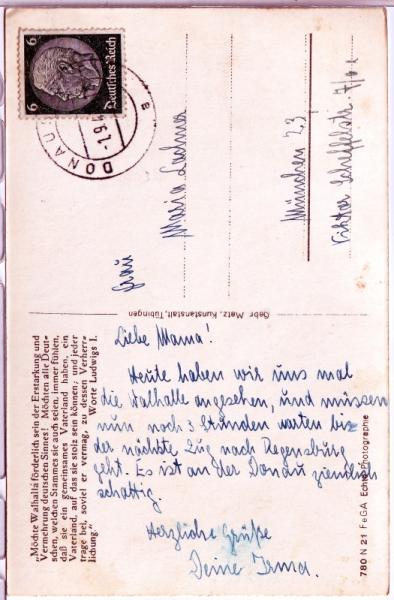 6 Deutsches Reich 6
DONAUS
-1.9.4
a
Frau
Maria Lechner
München 23
Viktor Scheffelstr.
Gebr. Metz, Kunstanstalt, Tübingen
Liebe Mama!
Heute haben wir uns mal
die Walhalla angesehen, und müssen
nun noch 3 Stunden warten bis
der nächste Zug nach Regensburg
geht. Es ist an der Donau ziemlich
schattig.
Herzliche Grüße
Deine Irma.
„Möchte Walhalla förderlich sein der Erstarkung und
Vermehrung deutschen Sinnes! Möchten alle Deut-
schen, welchen Stammes sie auch seien, immer fühlen,
daß sie ein gemeinsames Vaterland haben, ein
Vaterland, auf das sie stolz sein können; und jeder
trage bei, soviel er vermag, zu dessen Verherr-
lichung.“ Worte Ludwigs I.
780 N 21 FeGA Echte Photographie